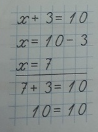 x + 3 = 10
x = 10 - 3
x = 7
7 + 3 = 10
10 = 10